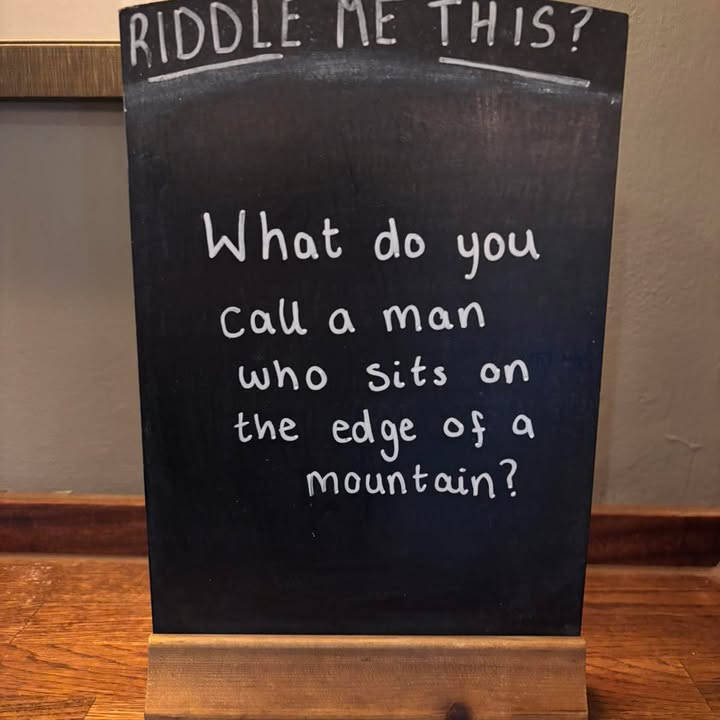 RIDDLE ME THIS?
What do you
call a man
who sits on
the edge of a
mountain?